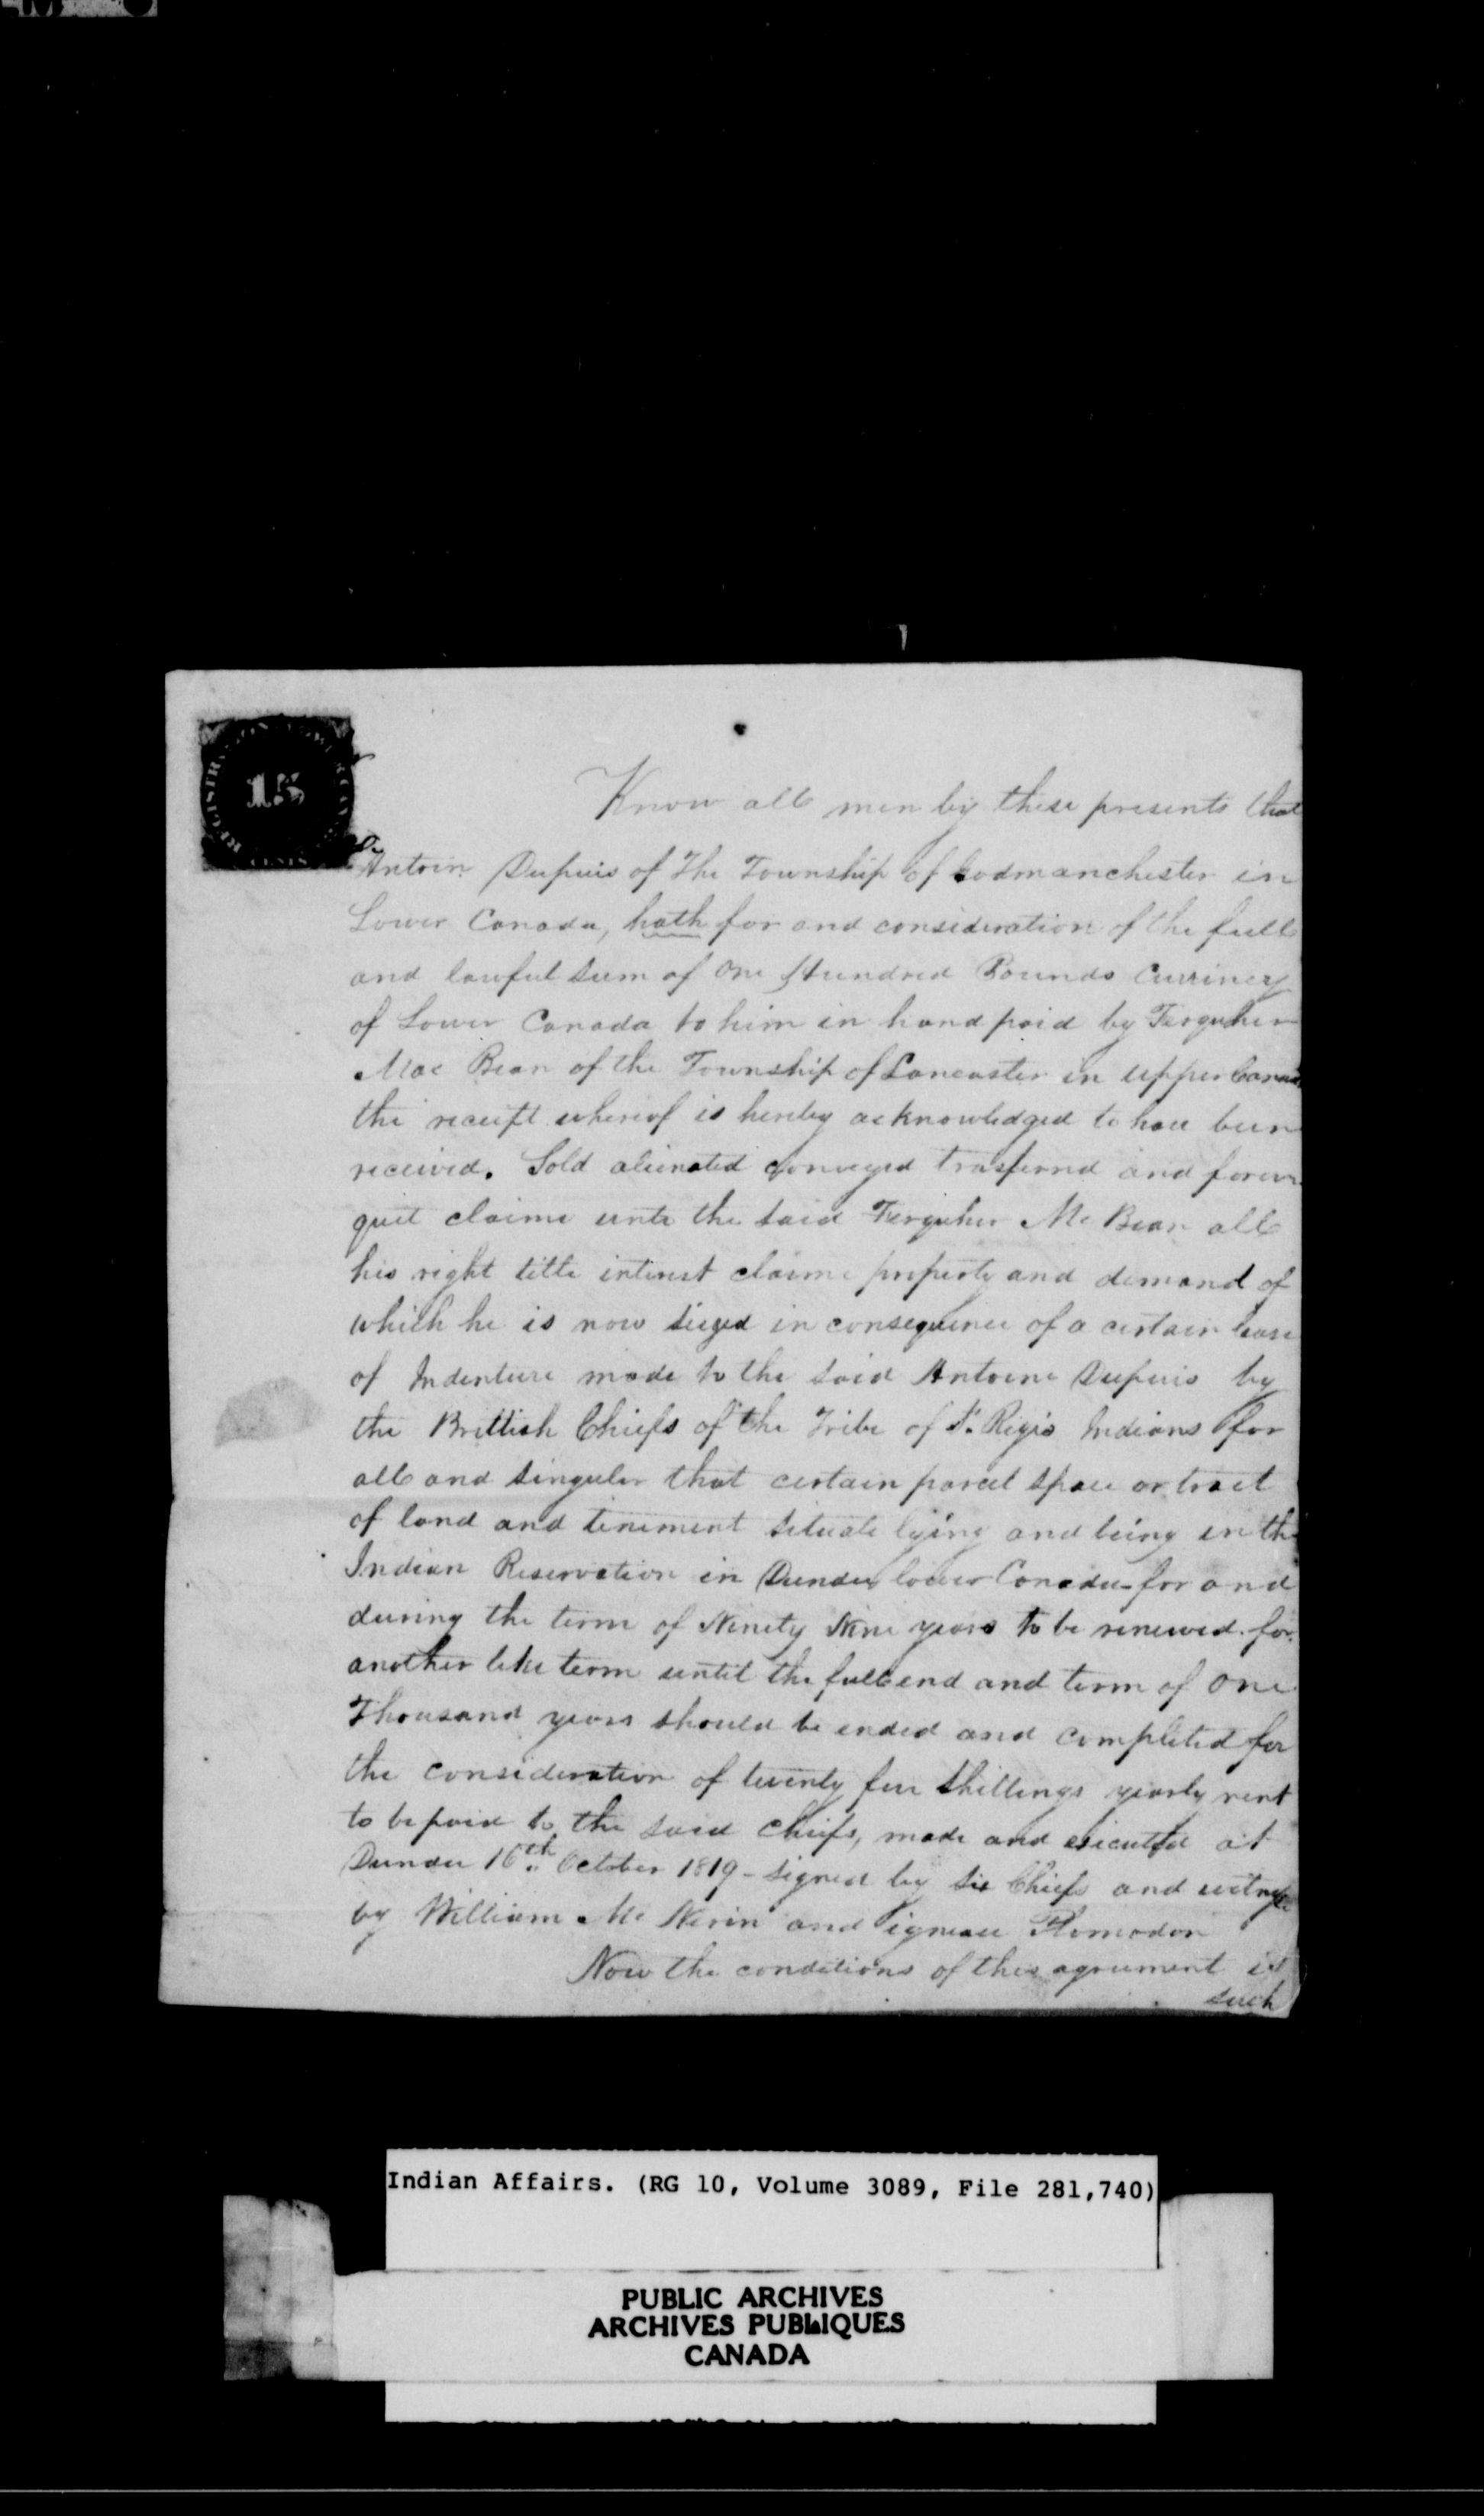 15
Know all men by these presents that
Antoin Dupuis of The Township of Godmanchester in
Lower Canada, hath for and consideration of the full
and lawful sum of One Hundred Pounds Currincy
of Lower Canada to him in hand paid by Ferquher
Mac Bean of the Township of Lancaster in upper Canada
the receipt whereof is hereby acknowledged to have been
received. Sold alienated conveyed trasferred and forever
quit claime unto the said Ferquher Mc Bean all
his right title interest claime property and demand of
which he is now siezed in consequence of a certain lease
of Indenture made to the said Antoine Dupuis by
the Brittish Chiefs of the Tribe of St. Regis Indians for
all and singuler that certain parcel space or tract
of land and teniment situate lying and being in the
Indian Reservation in Dundee lower Canada for and
during the term of Ninety Nine years to be renewed for
another like term until the full end and term of One
Thousand years should be ended and completed for
the consideration of twenty five shillings yearly rent
to be paid to the said chiefs, made and executed at
Dundee 16th October 1819 - signed by six Chiefs and
by William Mc and
Now the conditions of this agreement is
such
Indian Affairs. (RG 10, Volume 3089, File 281,740)
PUBLIC ARCHIVES
ARCHIVES PUBLIQUES
CANADA